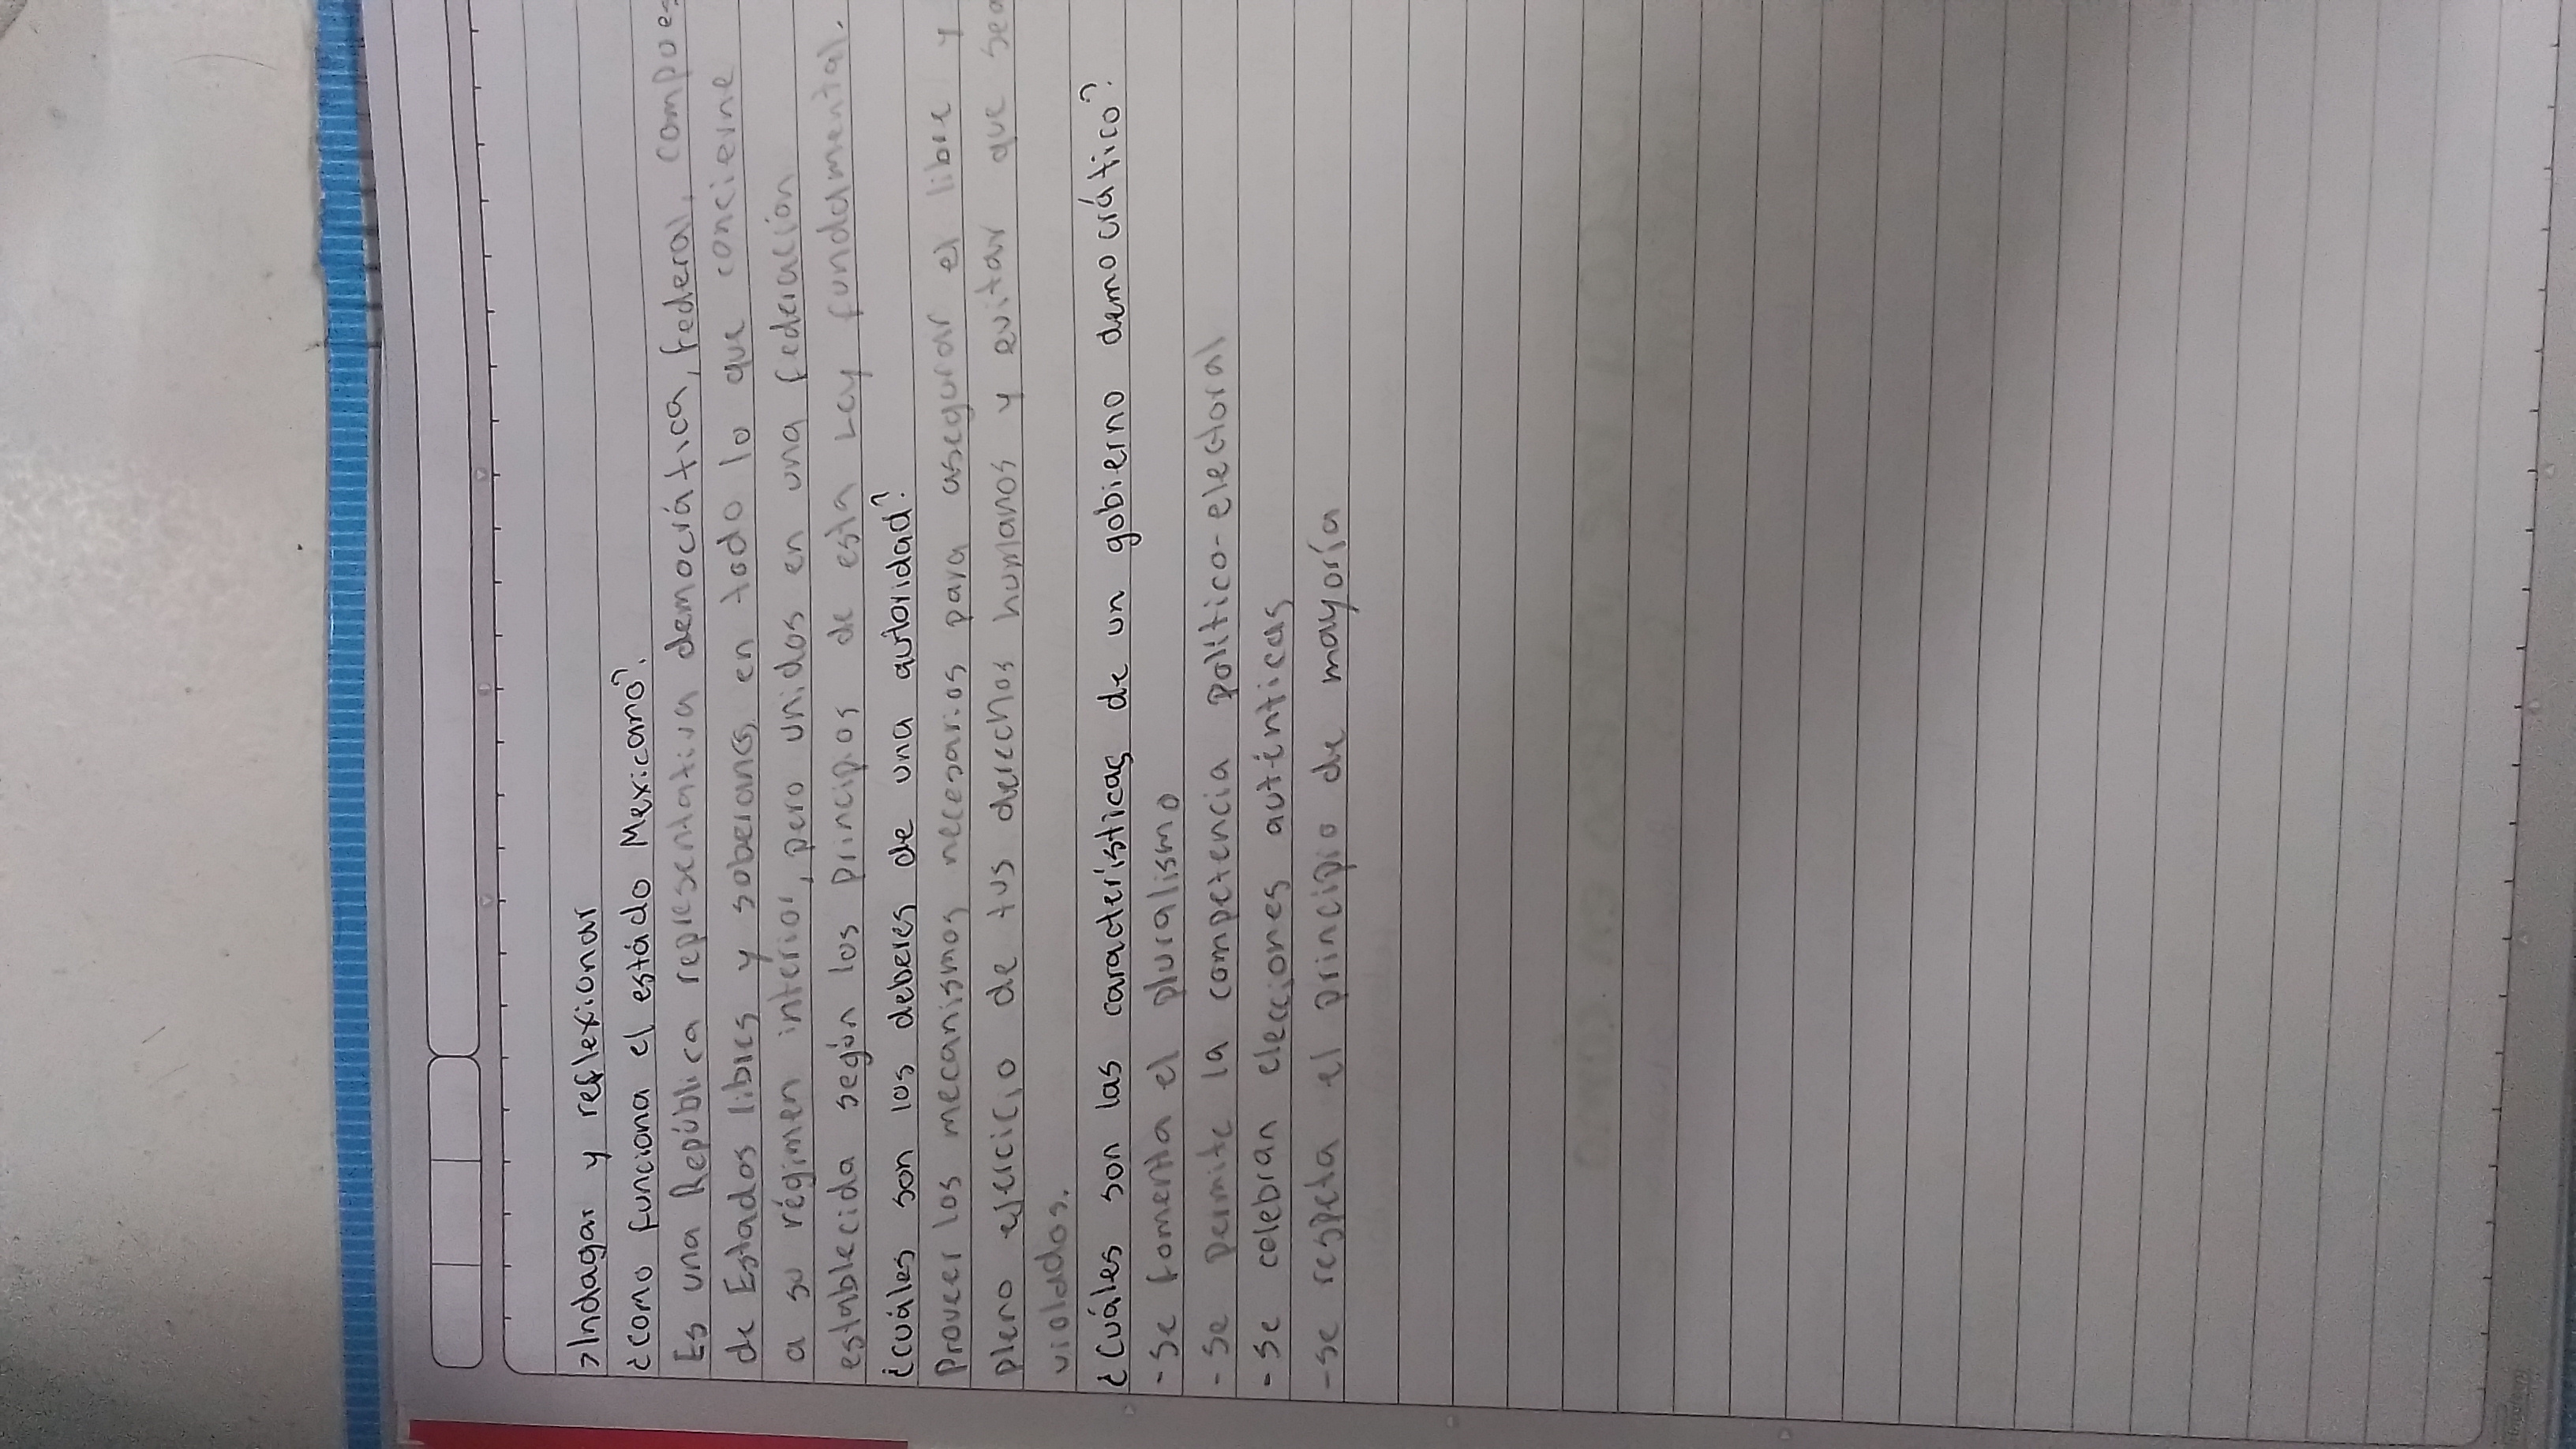 >Indagar y reflexionar
¿como funciona el estádo Mexicano?.
Es una República representativa democrática, federal, compues
de Estados libres y soberanos en todo lo que concierne
a su régimen interior, pero unidos en una federación
establecida según los principios de esta Ley fundamental.
¿cuáles son los deberes de una autoridad?
Proveer los mecanismos necesarios para asegurar el libre y
pleno ejercicio de tus derechos humanos y evitar que sea
violados.
¿Cuáles son las características de un gobierno democrático?.
- Se fomenta el pluralismo
- Se permite la competencia político-electoral
- Se celebran elecciones auténticas
- se respeta el principio de mayoría